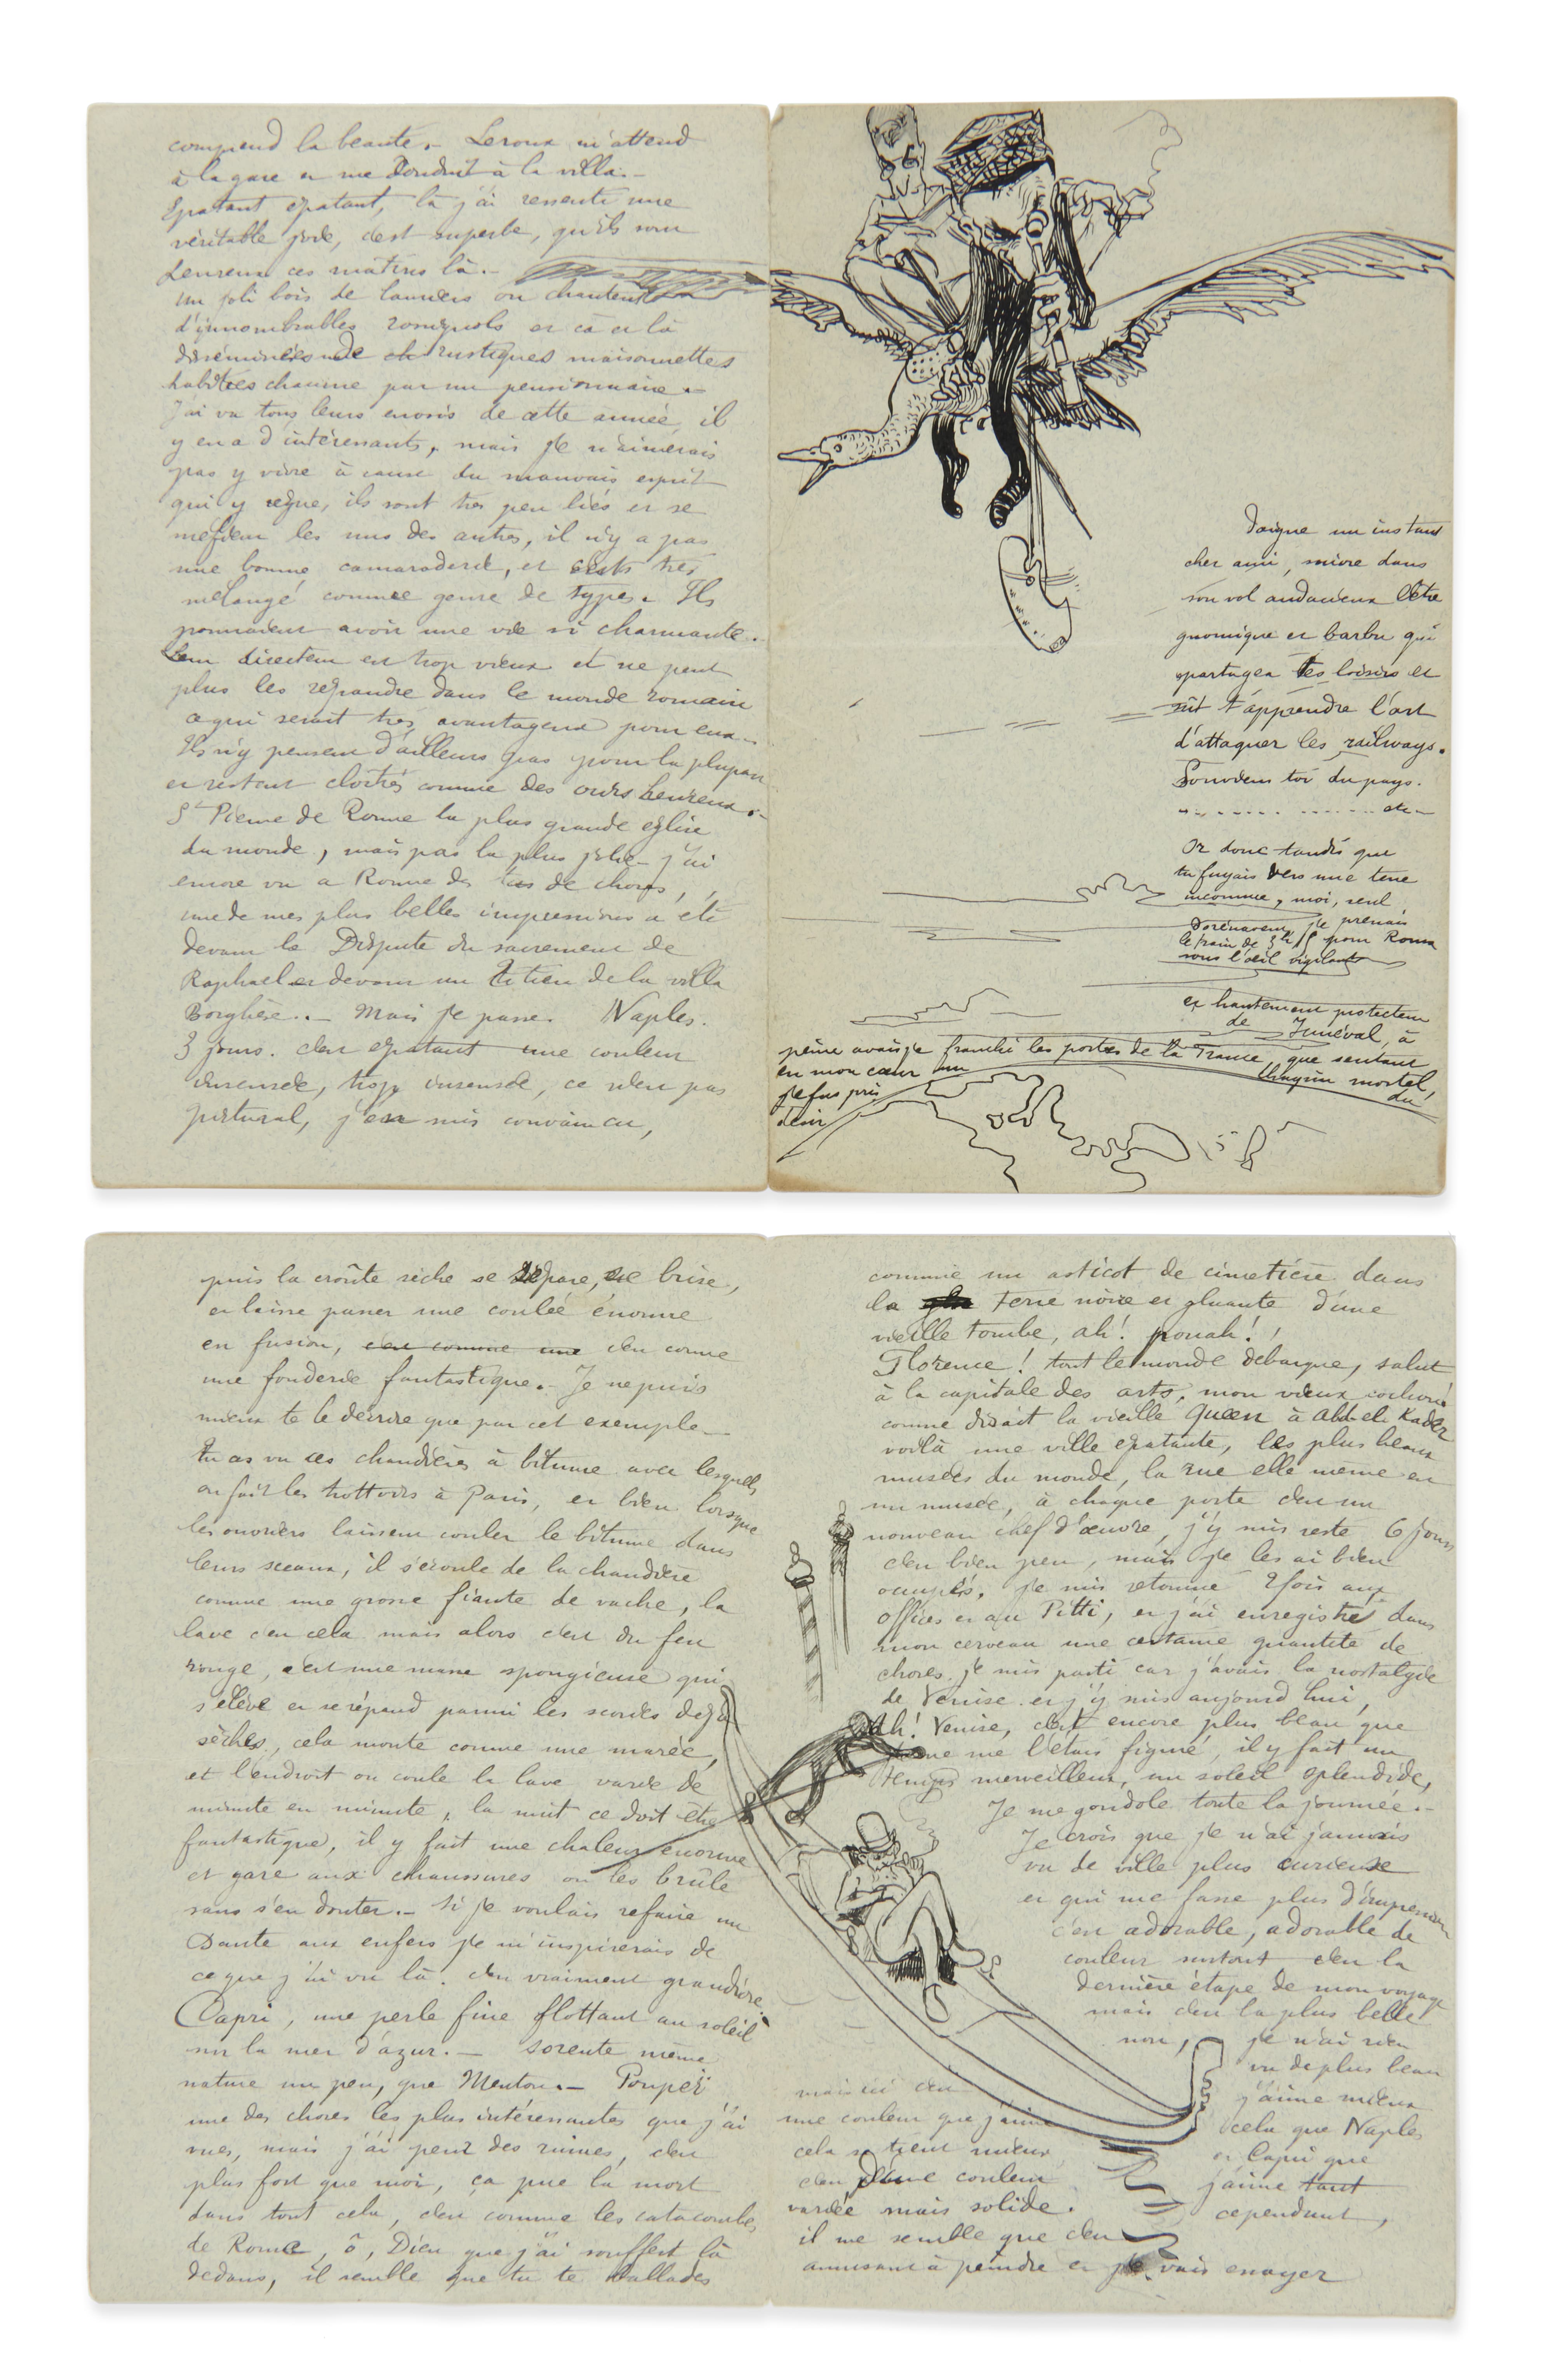 comprend la beauté. Leroux m'attend
à la gare et me conduit à la villa.-
Epatant epatant, là j'ai ressenti une
véritable joie, c'est superbe, qu'ils sont
heureux ces mâtins là.-
un joli bois de lauriers où chantent
d'innombrables rossignols et çà et là
disséminées de rustiques maisonnettes
habitées chacune par un pensionnaire.-
J'ai vu tous leurs envois de cette année, il
y en a d'intéressants, mais je n'aimerais
pas y vivre à cause du mauvais esprit
qui y règne, ils sont très peu liés et se
mefient les uns des autres, il n'y a pas
une bonne camaraderie, et c'est très
mélangé comme genre de types. Ils
pourraient avoir une vie si charmante.-
Leur directeur est trop vieux et ne peut
plus les répandre dans le monde romain
ce qui serait très avantageux pour eux.-
Ils n'y pensent d'ailleurs pas pour la plupart
et restent cloîtrés comme des ours heureux.-
St Pierre de Rome la plus grande eglise
du monde, mais pas la plus jolie- j'ai
encore vu a Rome des tas de choses,
une de mes plus belles impressions a été
devant la Dispute du sacrement de
Raphael et devant un Titien de la villa
Borghèse.- Mais je passe. Naples.
3 jours. c'est epatant une couleur
insensée, trop insensée, ce n'est pas
pictural, j'en suis convaincu,
Daigne un instant
cher ami, suivre dans
son vol audacieux l'être
gnomique et barbu qui
partagea tes loisirs et
sût t'apprendre l'art
d'attaquer les railways.
Souviens toi du pays.
.. . . . . . . . . . . . etc-
Or donc tandis que
tu fuyais vers une terre
inconnue, moi, seul
dorénavant, je prenais
le train de 3h 15 pour Rome
sous l'œil vigilant
et hautement protecteur
de Junéval, à
peine avais-je franchi les portes de la France, que sentant
en mon cœur un chagrin mortel,
je fus pris du
désir
puis la croûte sèche se sépare, se brise,
et laisse passer une coulée énorme
en fusion, c'est comme une c'est comme
une fonderie fantastique.- Je ne puis
mieux te le décrire que par cet exemple-
Tu as vu ces chaudières à bitume avec lesquelles
on fait les trottoirs à Paris, et bien lorsque
les ouvriers laissent couler le bitume dans
leurs sceaux, il s'écoule de la chaudière
comme une grosse fiante de vache, la
lave c'est cela mais alors c'est du feu
rouge, c'est une masse spongieuse qui
s'élève et se répand parmi les scories déjà
sèches, cela monte comme une marée,
et l'endroit où coule la lave varie de
minute en minute, la nuit ce doit être
fantastique, il y fait une chaleur énorme
et gare aux chaussures on les brûle
sans s'en douter.- Si je voulais refaire un
Dante aux enfers je m'inspirerais de
ce que j'ai vu là. c'est vraiment grandiose.
Capri, une perle fine flottant au soleil
sur la mer d'azur.- Sorente même
nature un peu, que Menton.- Pompei
une des choses les plus intéressantes que j'ai
vues, mais j'ai peur des ruines, c'est
plus fort que moi, ça pue la mort
dans tout cela, c'est comme les catacombes
de Rome, ô, Dieu que j'ai souffert là
dedans, il semble que tu te ballades
comme un asticot de cimetière dans
la terre noire et gluante d'une
vieille tombe, ah! pouah!,
Florence! tout le monde débarque, salut
à la capitale des arts, mon vieux cochon
comme disait la vieille Queen à Abd-el-Kader
voilà une ville epatante, les plus beaux
musées du monde, la rue elle meme est
un musée, à chaque porte c'est un
nouveau chef d'œuvre, j'y suis resté 6 jours
c'est bien peu, mais je les ai bien
occupés. je suis retourné 2 fois aux
offices et au Pitti, et j'ai enregistré dans
mon cerveau une certaine quantité de
choses. je suis parti car j'avais la nostalgie
de Venise. et j'y suis aujourd'hui,
Ah! Venise, c'est encore plus beau que
je ne me l'étais figuré, il y fait un
temps merveilleux, un soleil splendide,
Je me gondole toute la journée.-
Je crois que je n'ai jamais
vu de ville plus curieuse
et qui me fasse plus d'impression
c'est adorable, adorable de
couleur surtout c'est la
dernière étape de mon voyage
mais c'est la plus belle
non, je n'ai rien
vu de plus beau
j'aime mieux
cela que Naples
et Capri que
j'aime tant
cependant,
mais ici c'est
une couleur que j'aime
cela se tient mieux
c'est d'une couleur
variée mais solide.
il me semble que c'est
amusant à peindre et je vais essayer